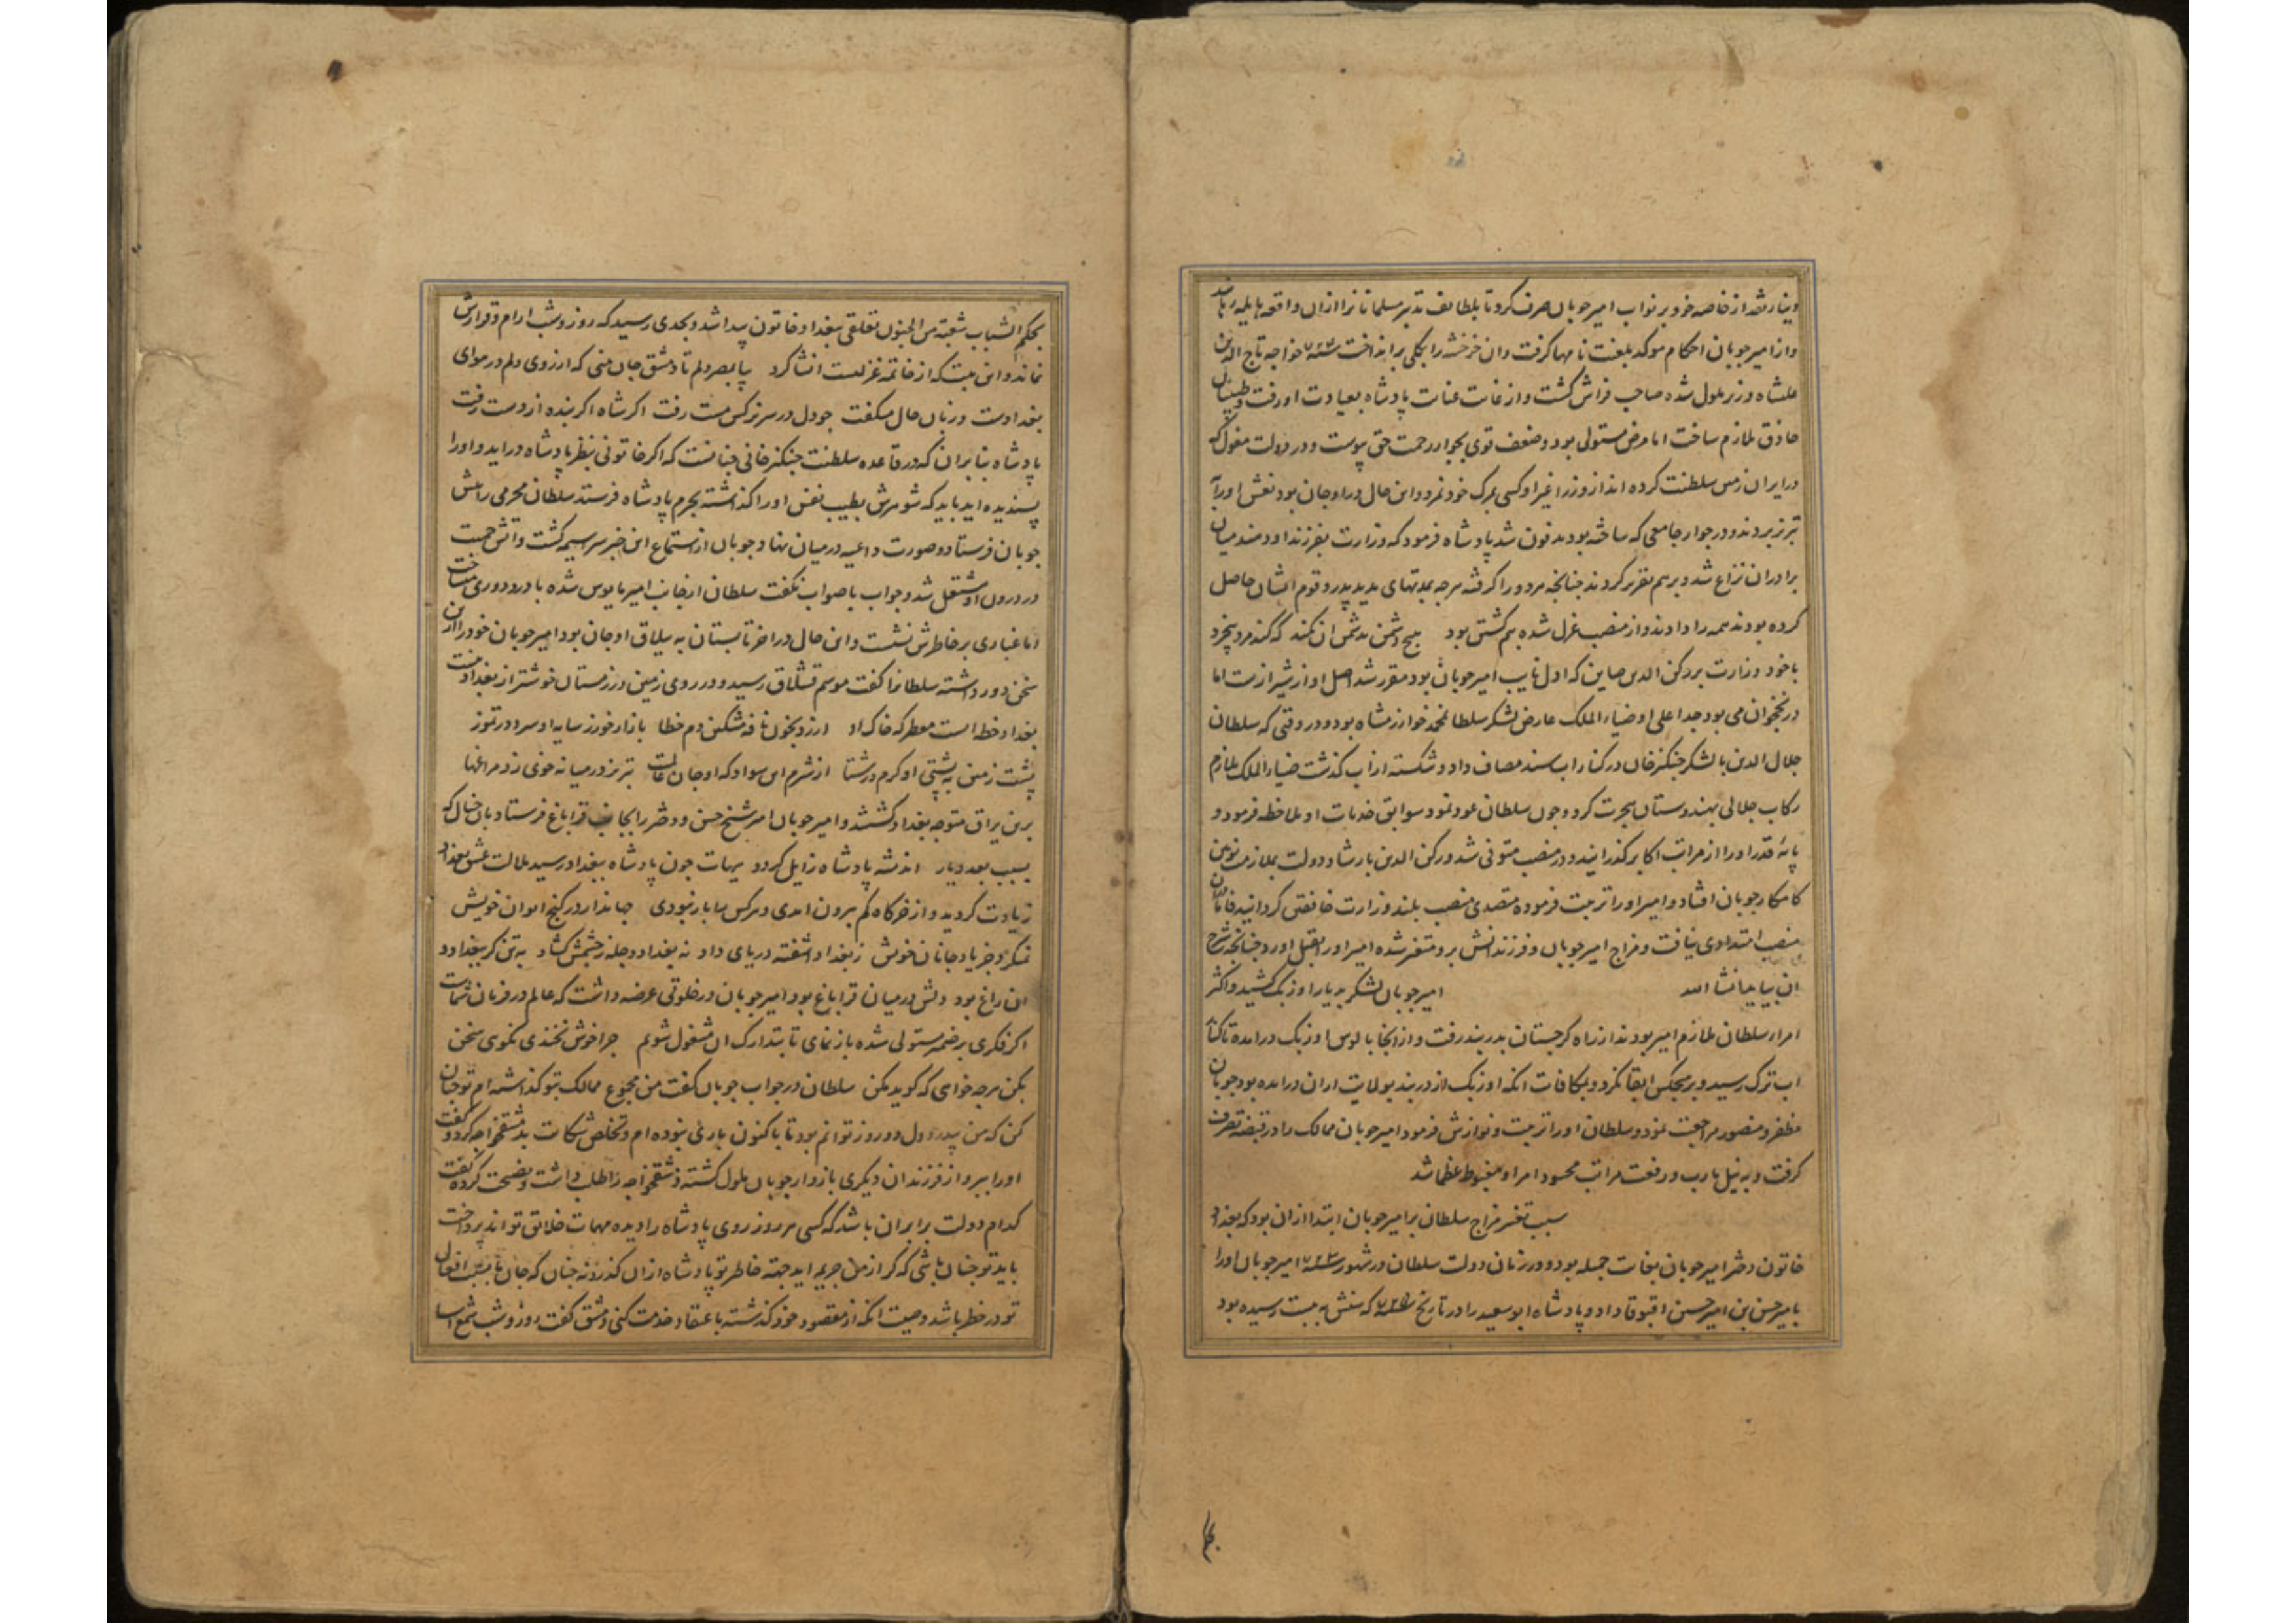 دینار نقد از خاصه خود بر نواب امیر چوبان صرف کرد تا بلطایف تدبیر مسلمانانرا ازان واقعه هایله رهانید
و از امیر چوبان احکام موکد بلعنت نامها گرفت و ان خرخشه را بکلی برانداخت سنه ۷۲۴ خواجه تاج الدین
علیشاه وزیر ملول شده صاحب فراش گشت و از غایت عنایت پادشاه بعیادت او رفت و طبیبان
حاذق ملازم ساخت اما مرض مستولی بود و ضعف قوی بجوار رحمت حق پیوست و در دولت مغول که
در ایران زمین سلطنت کرده اند از وزرا غیر او کسی بمرگ خود نمرد و این حال در اوجان بود نعش او را به
تبریز بردند و در جوار جامعی که ساخته بود مدفون شد پادشاه فرمود که وزارت بفرزند او دهند میان
برادران نزاع شد و بر هم تقریر کردند چنانچه هر دو را گرفته هرچه بمدتهای مدید پدر و قوم ایشان حاصل
کرده بودند همه را دادند و از منصب عزل شده بیم کشتن بود هیچ دشمن بدشمن ان نکند که کند مرد بیخرد
با خود وزارت بر رکن الدین صاین که اول نایب امیر چوبان بود مقرر شد اصل او از شیراز است اما
در نخجوان می بود جد اعلی او ضیاء الملک عارض لشکر سلطان محمد خوارزمشاه بود و در وقتی که سلطان
جلال الدین با لشکر چنکز خان در کنار اب سند مصاف داد و شکسته از اب گذشت ضیاء الملک ملازم
رکاب جلالی بهندوستان هجرت کرد و چون سلطان عود نمود سوابق خدمات او ملاحظه فرمود و
پایه قدر او را از مراتب اکابر گذرانید و در منصب متوفی شد و رکن الدین بارشاد دولت بملازمت نوین
کامکار چوبان افتاد و امیر او را تربیت فرموده متصدی منصب بلند وزارت گردانید فاما ان
منصب امتدادی نیافت و مزاج امیر چوبان و فرزندانش برو متغیر شده امیر او را بقتل اورد چنانچه شرح
ان بیاید انشا الله امیر چوبان لشکر بدیار اوزبک کشید و اکثر
امراء سلطان ملازم امیر بودند از راه گرجستان بدربند رفت و از انجا بالوس اوزبک درامده تا کنار
اب ترک رسید و بر هیچکس ابقا نکرد و بمکافات انکه اوزبک از دربند بولایت اران درامده بود چوبان
مظفر و منصور مراجعت نمود و سلطان او را تربیت و نوازش فرمود امیر چوبان ممالک را در قبضه تصرف
گرفت و به نیل مارب و رفعت مراتب محسود امرا و مغبوط عظما شد
سبب تغییر مزاج سلطان بر امیر چوبان ابتدا ازان بود که بغداد
خاتون دختر امیر چوبان بغایت جمیله بود و در زمان دولت سلطان در شهور سنه ۷۲۳ امیر چوبان او را
بامیر حسن بن امیر حسین اقبوقا داد و پادشاه ابو سعید را در تاریخ سنه ۷۲۵ که سنش به بیست رسیده بود
بحکم
بحکم الشباب شعبة من الجنون تعلقی ببغداد خاتون پیدا شد و بحدی رسید که روز و شب ارام و قرارش
نماند و این بیت که از خاتمه غزلیست انشا کرد بیا بمصر دلم تا دمشق جان بینی که ارزوی دلم در هوای
بغدادست و زبان حال میگفت چو دل در سر نرگس مست رفت اگر شاه اگر بنده از دست رفت
پادشاه بنا بران که در قاعده سلطنت چنکز خانی چنانست که اگر خاتونی بنظر پادشاه دراید و او را
پسندیده اید باید که شوهرش بطیب نفس او را گذاشته بحرم پادشاه فرستد سلطان محرمی را پیش
چوبان فرستاد و صورت داعیه در میان نهاد چوبان از استماع این خبر سراسیمه گشت و اتش حمیت
در درون او مشتعل شد و جواب باصواب نگفت سلطان از جانب امیر مایوس شده با درد دوری میساخت
اما غباری بر خاطرش نشست و این حال در اخر تابستان به ییلاق اوجان بود امیر چوبان خود را ازین
سخن دور داشته سلطانرا گفت موسم قشلاق رسید و در روی زمین در زمستان خوشتر از بغداد نیست
بغداد خطه ایست معطر که خاک او ارزد بخون نافه مشکین دم خطا بازار خور ز سایه او سرد در تموز
پشت زمین به پشتی او گرم در شتا از شرم این سواد که او جان عالمست تبریز در میانه خوی زد مراغها
برین یراق متوجه بغداد گشتند و امیر چوبان امیر شیخ حسن و دختر را بجانب قراباغ فرستاد بان خیال که
بسبب بعد دیار اندیشه پادشاه زایل گردد هیهات چون پادشاه ببغداد رسید ملالت عشق بغداد
زیادت گردید و از خرگاه کم بیرون امدی و هرکس را بار نبودی جهاندار در کنج ایوان خویش
نمیکرد جز یاد جانان خویش ز بغداد اشفته دریای داد نه بغداد و دجله ز چشمش گشاد به تن گر ببغداد و
ان راغ بود دلش در میان قراباغ بود امیر چوبان در خلوتی عرضه داشت که عالم در فرمان شماست
اگر فکری بر ضمیر مستولی شده باز نمای تا بتدارک ان مشغول شویم چرا خوش نخندی نگوی سخن
بکن هرچه خواهی که گوید مکن سلطان در جواب چوبان گفت من مجموع ممالک بتو گذاشته ام تو چنان
کن که من دو روز توانم بود تا باکنون باری نبوده ام و تخلص شکایت بدمشقخواجه کرد و گفت
او را ببر و از فرزندان دیگری باز دار چوبان ملول گشته دمشقخواجه را طلب داشت و نصیحت کرده گفت
کدام دولت برابر ان باشد که کسی هر روز روی پادشاه را دیده مهمات خلایق تواند پرداخت
باید تو چنان باشی که گر از من جریمه اید جهته خاطر تو پادشاه ازان گذرد نه چنان که جان ما بسبب افعال
تو در خطر باشد وصیت انکه از مقصود خود گذشته باعتقاد خدمت کنی دمشق گفت روز و شب شمع اسا